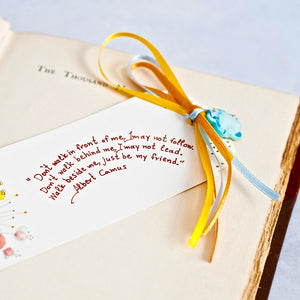 THE THOUSAND
"Don't walk in front of me, I may not follow.
Don't walk behind me, I may not lead.
Walk beside me, just be my friend."
Albert Camus